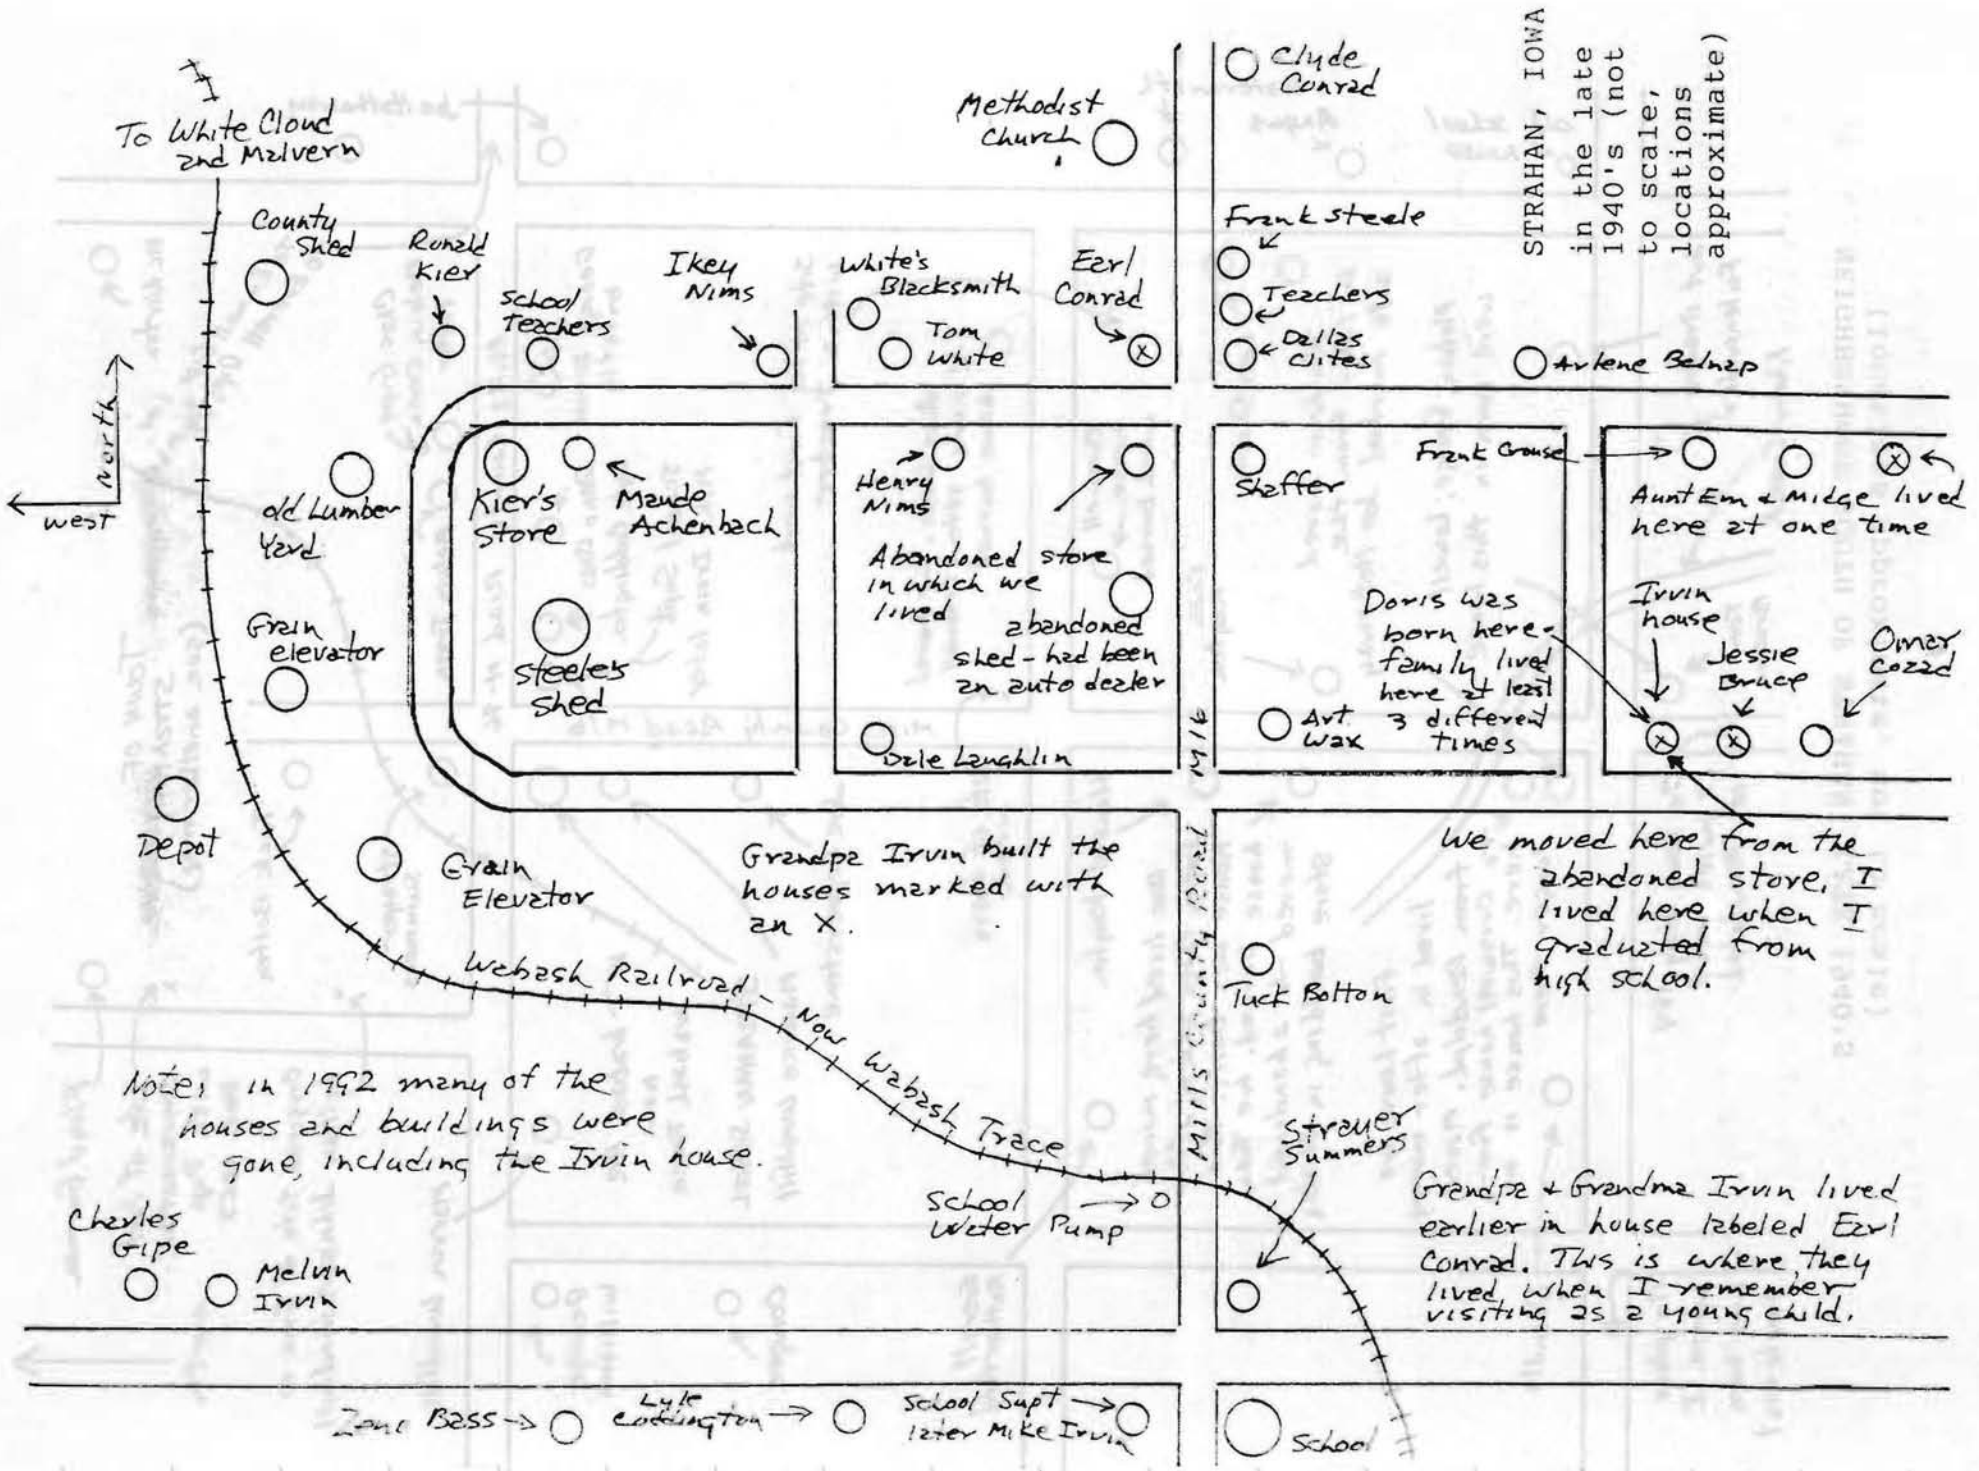 STRAHAN, IOWA
in the late
1940's (not
to scale,
locations
approximate)
To White Cloud
and Malvern
Methodist
Church
Clyde
Conrad
County
Shed
Ronald
Kier
School
Teachers
Ikey
Nims
White's
Blacksmith
Tom
White
Earl
Conrad
X
Frank Steele
Teachers
Dallas
Clites
Arlene Belnap
North
West
old Lumber
Yard
Kier's
Store
Maude
Achenbach
Henry
Nims
Abandoned store
in which we
lived
abandoned
shed - had been
an auto dealer
Shaffer
Frank Crouse
X
Aunt Em & Midge lived
here at one time
Grain
elevator
Steele's
Shed
Dale Laughlin
Doris was
born here.
family lived
here at least
3 different
times
Art
Wax
Irvin
house
Jessie
Bruce
Omar
Cozad
X
X
Depot
Grain
Elevator
Grandpa Irvin built the
houses marked with
an X.
M16
Mills County Road
We moved here from the
abandoned store, I
lived here when I
graduated from
high school.
Wabash Railroad - Now Wabash Trace
Tuck Bolton
Note, in 1992 many of the
houses and buildings were
gone, including the Irvin house.
Strayer
Summers
School
Water Pump
Grandpa & Grandma Irvin lived
earlier in house labeled Earl
Conrad. This is where they
lived when I remember
visiting as a young child.
Charles
Gipe
Melvin
Irvin
Bass
Lyle
Coddington
School Supt
later Mike Irvin
School